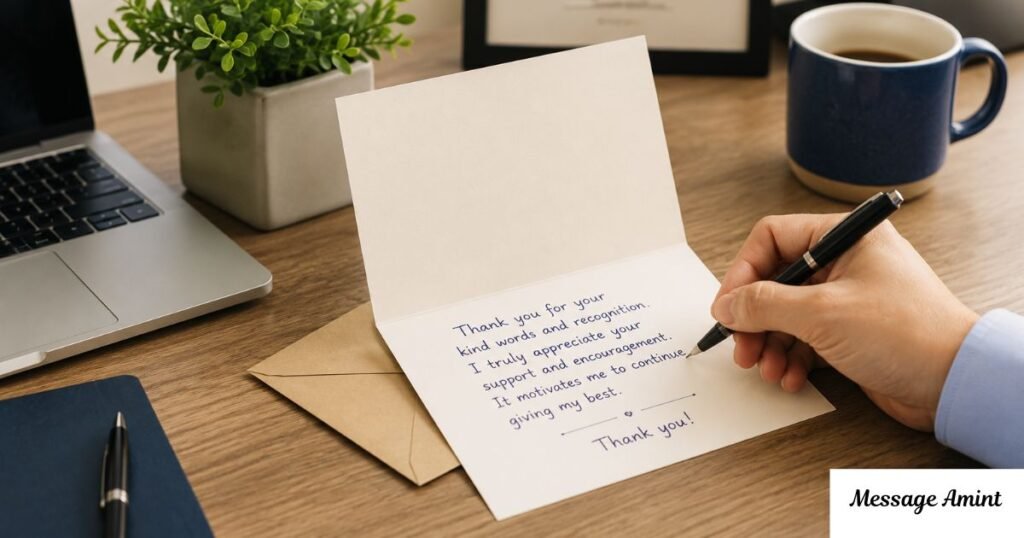 Thank you for your
kind words and recognition.
I truly appreciate your
support and encouragement.
It motivates me to continue
giving my best.
Thank you!
Message Amint